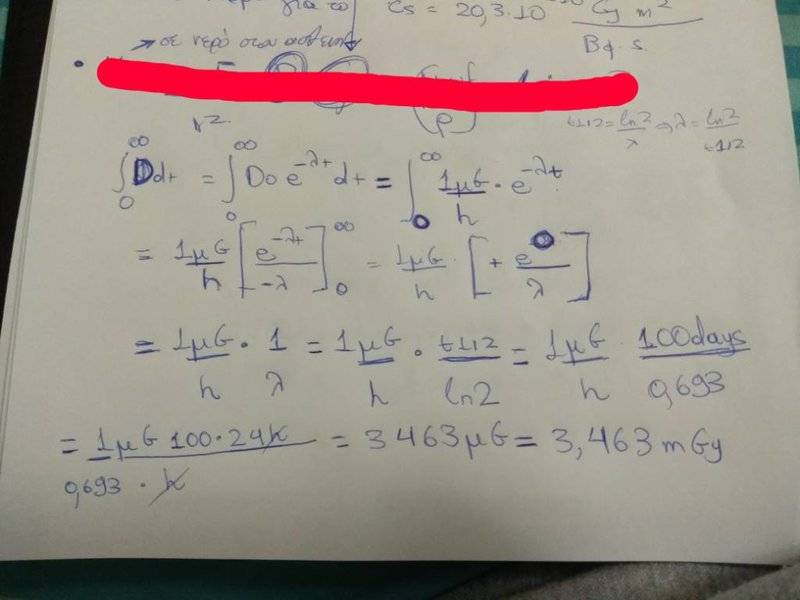 για το Γs = 20,3·10 Gy m²
Bq·s
→ σε νερό στον
r²
ρ
t1/2 = ln2/λ → λ = ln2/t1/2
∫₀^∞ Ddt = ∫₀^∞ Do e^-λt dt = ∫₀^∞ 1μG/h · e^-λt
= 1μG/h [e^-λt/-λ]₀^∞ = 1μG/h · [+ e^0/λ]
= 1μG/h · 1/λ = 1μG/h · t1/2/ln2 = 1μG/h 100days/0,693
= 1μG 100·24h/0,693·h = 3463μG = 3,463mGy